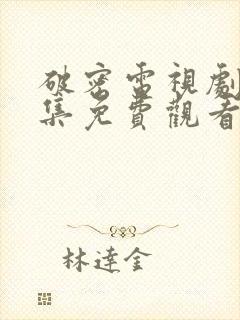 破密電視劇
集免費觀看
林達金